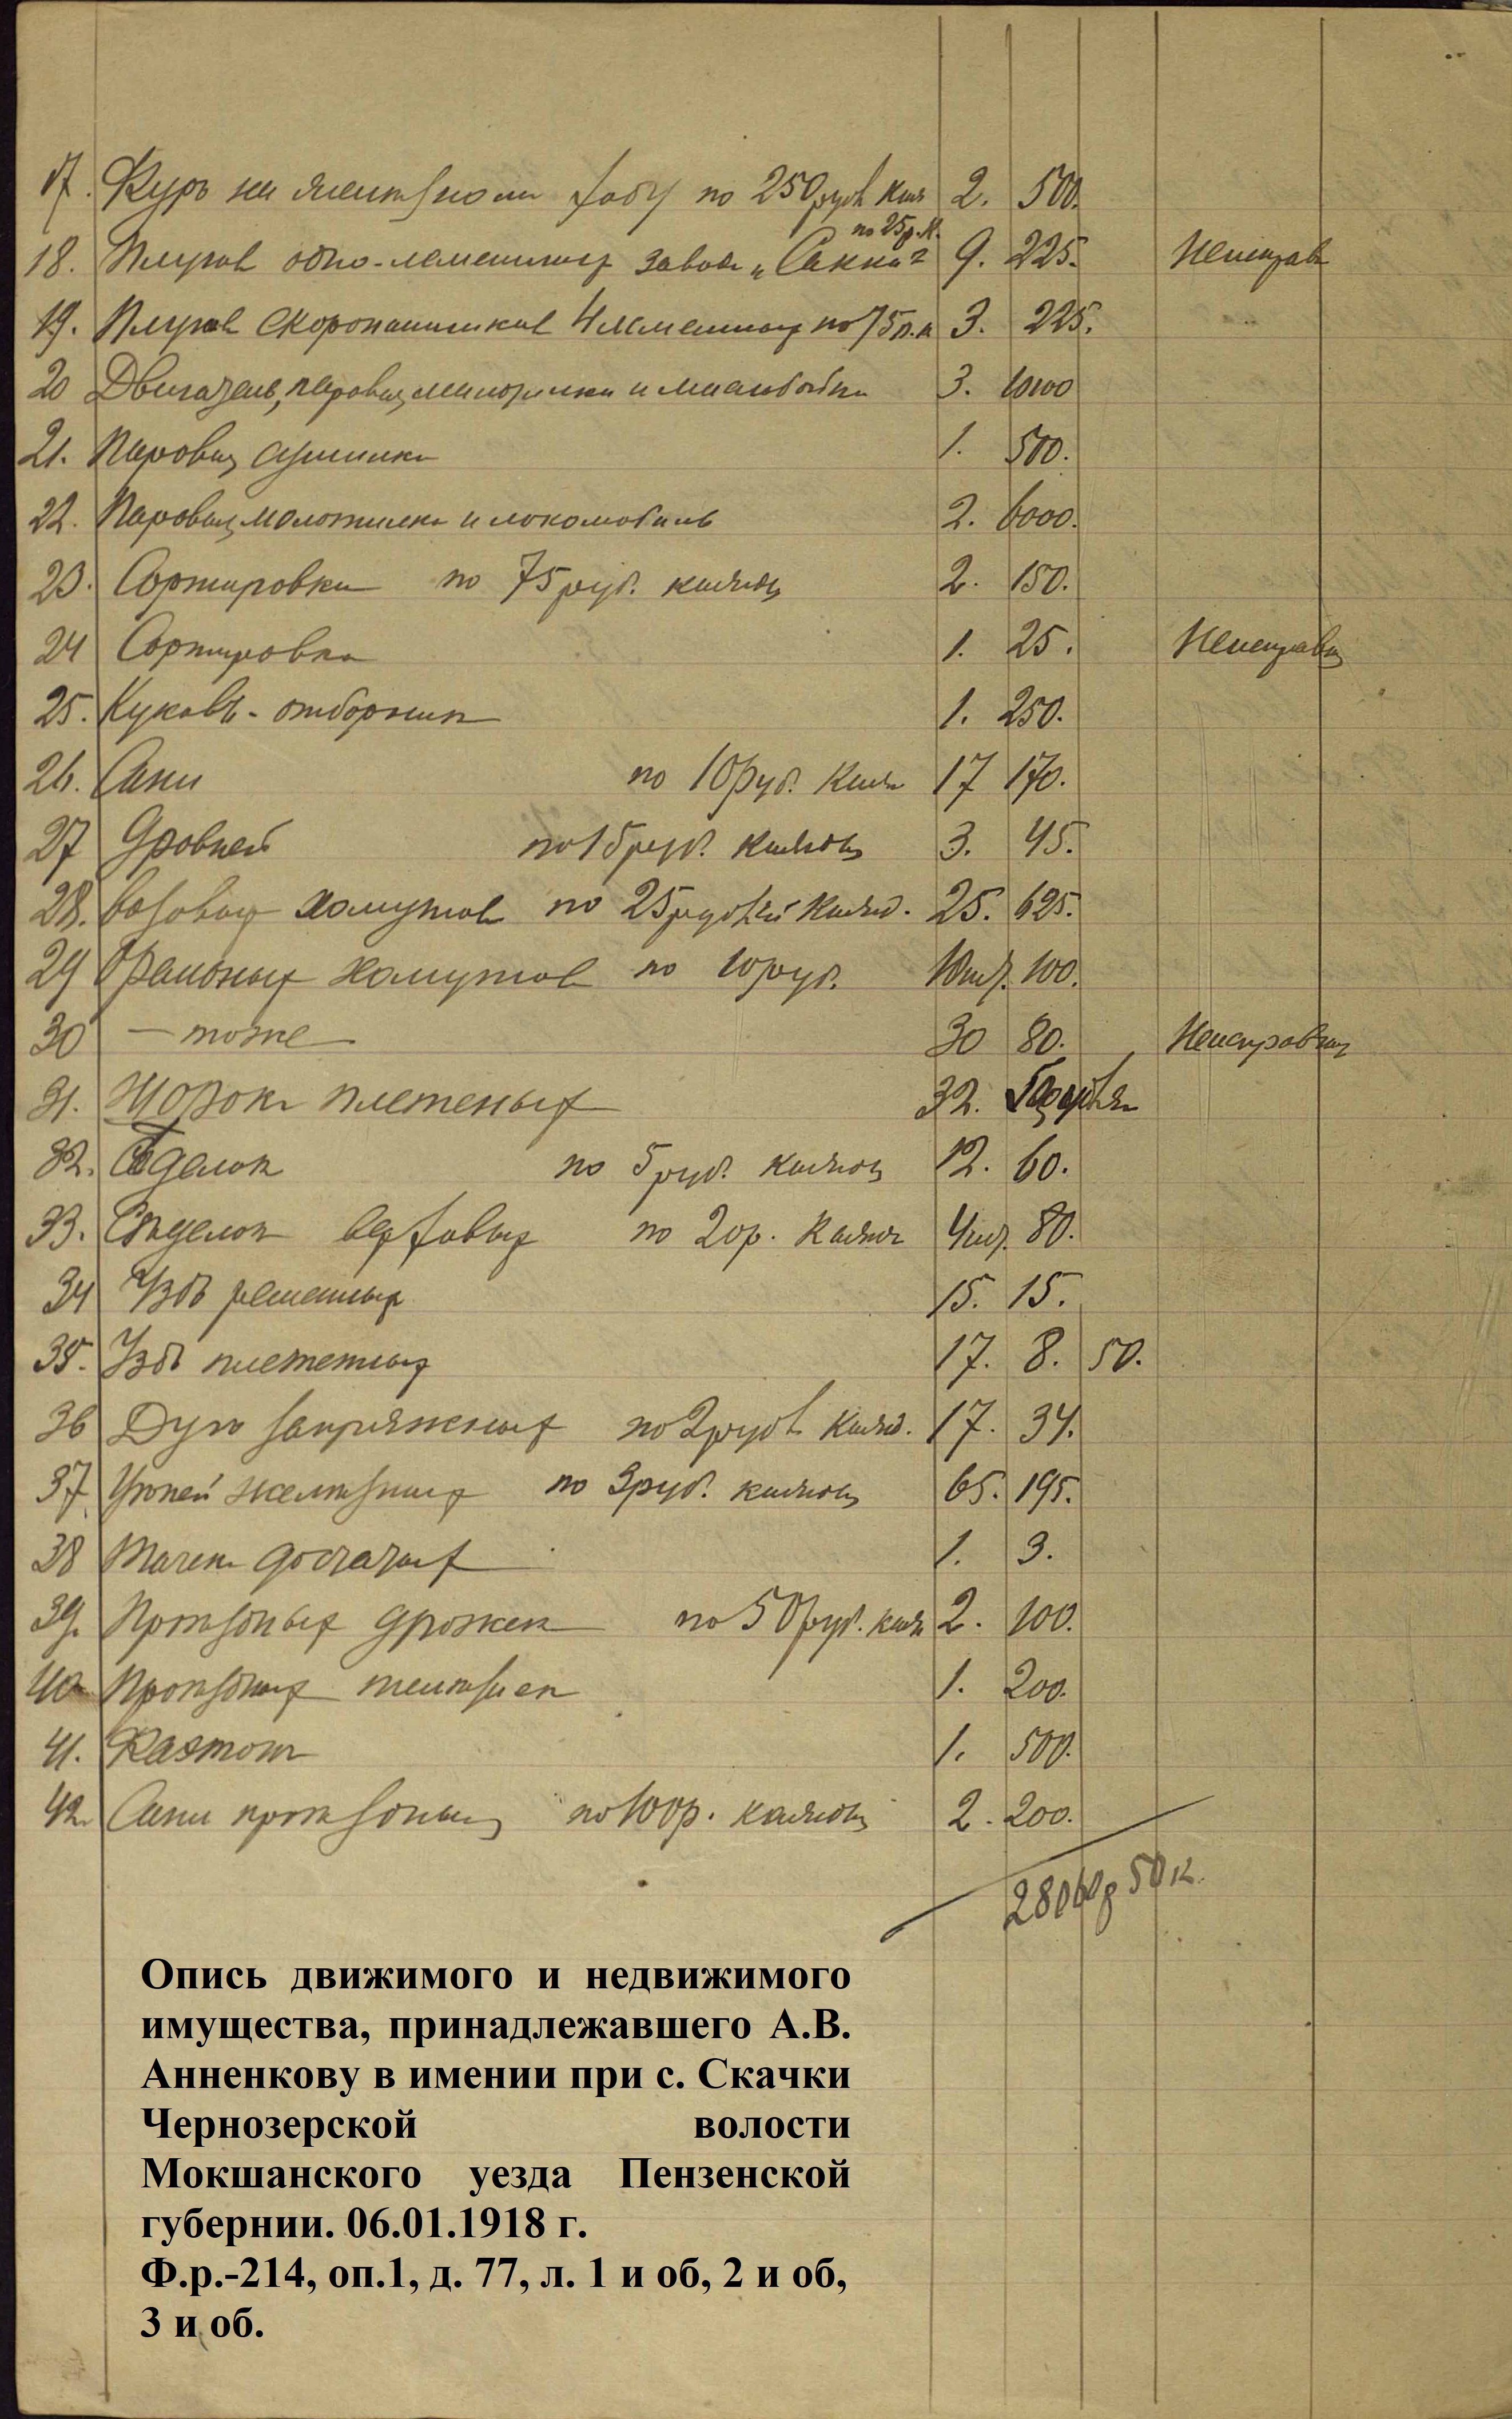 17. по 250 руб кая 2. 500.
по 25 р. к.
18. Плугов одно-лемешных завода „Сакка" 9. 225. Неисправ
19. Плугов скоропашников 4 лемешных по 75 р. к 3. 225.
20 Двигатель, паровая и 3. 10000
21. Паровая сушилка 1. 500.
22. Паровая молотилка и локомобиль 2. 6000.
23. Сортировки по 75 руб. каждая 2. 150.
24 Сортировка 1. 25. Неисправная
25. Куколь-отборник 1. 250.
26. Сани по 10 руб. кажд 17 170.
27 Дровней по 15 руб. каждыя 3. 45.
28. Возовых хомутов по 25 рублей кажд. 25. 625.
29 Пральных хомутов по 10 руб. 10 шт. 100.
30 — тоже 30 80. Неисправных
31. Шорок плетеных 32.
32. Седелок по 5 руб. каждая 12. 60.
33. Седелок верховых по 20 р. каждая 4 шт. 80.
34 Узд ременных 15. 15.
35. Узд плетенных 17. 8. 50.
36 Дуги запряжных по 2 руб кажд. 17. 34.
37 Цепей желѣзных по 3 руб. каждая 65. 195.
38 Тачек досчатых 1. 3.
39. Проѣздных дрожек по 50 руб. кажд 2. 100.
40 Проѣздных тележек 1. 200.
41. Фаэтон 1. 500.
42. Сани проѣздныя по 100 р. каждыя 2. 200.
28060 р 50 к.
Опись движимого и недвижимого
имущества, принадлежавшего А.В.
Анненкову в имении при с. Скачки
Чернозерской волости
Мокшанского уезда Пензенской
губернии. 06.01.1918 г.
Ф.р.-214, оп.1, д. 77, л. 1 и об, 2 и об,
3 и об.